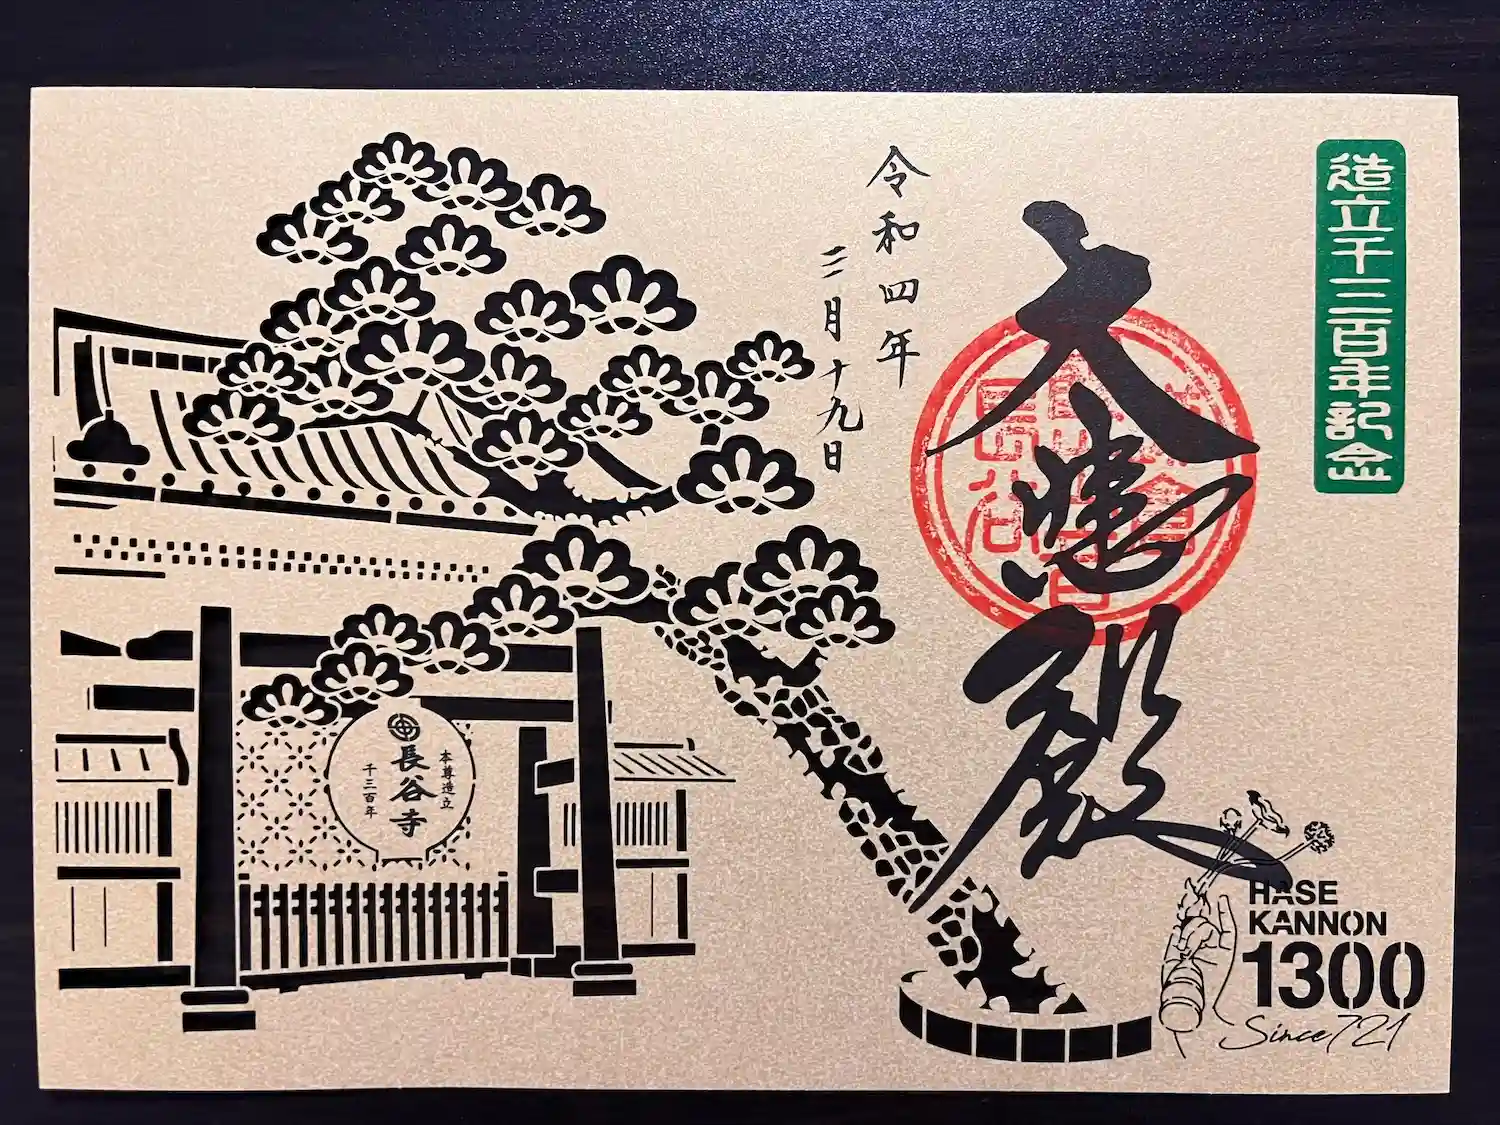 造立千三百年記念
大悲殿
令和四年
三月十九日
本尊造立
長谷寺
千三百年
HASE
KANNON
1300
Since 721